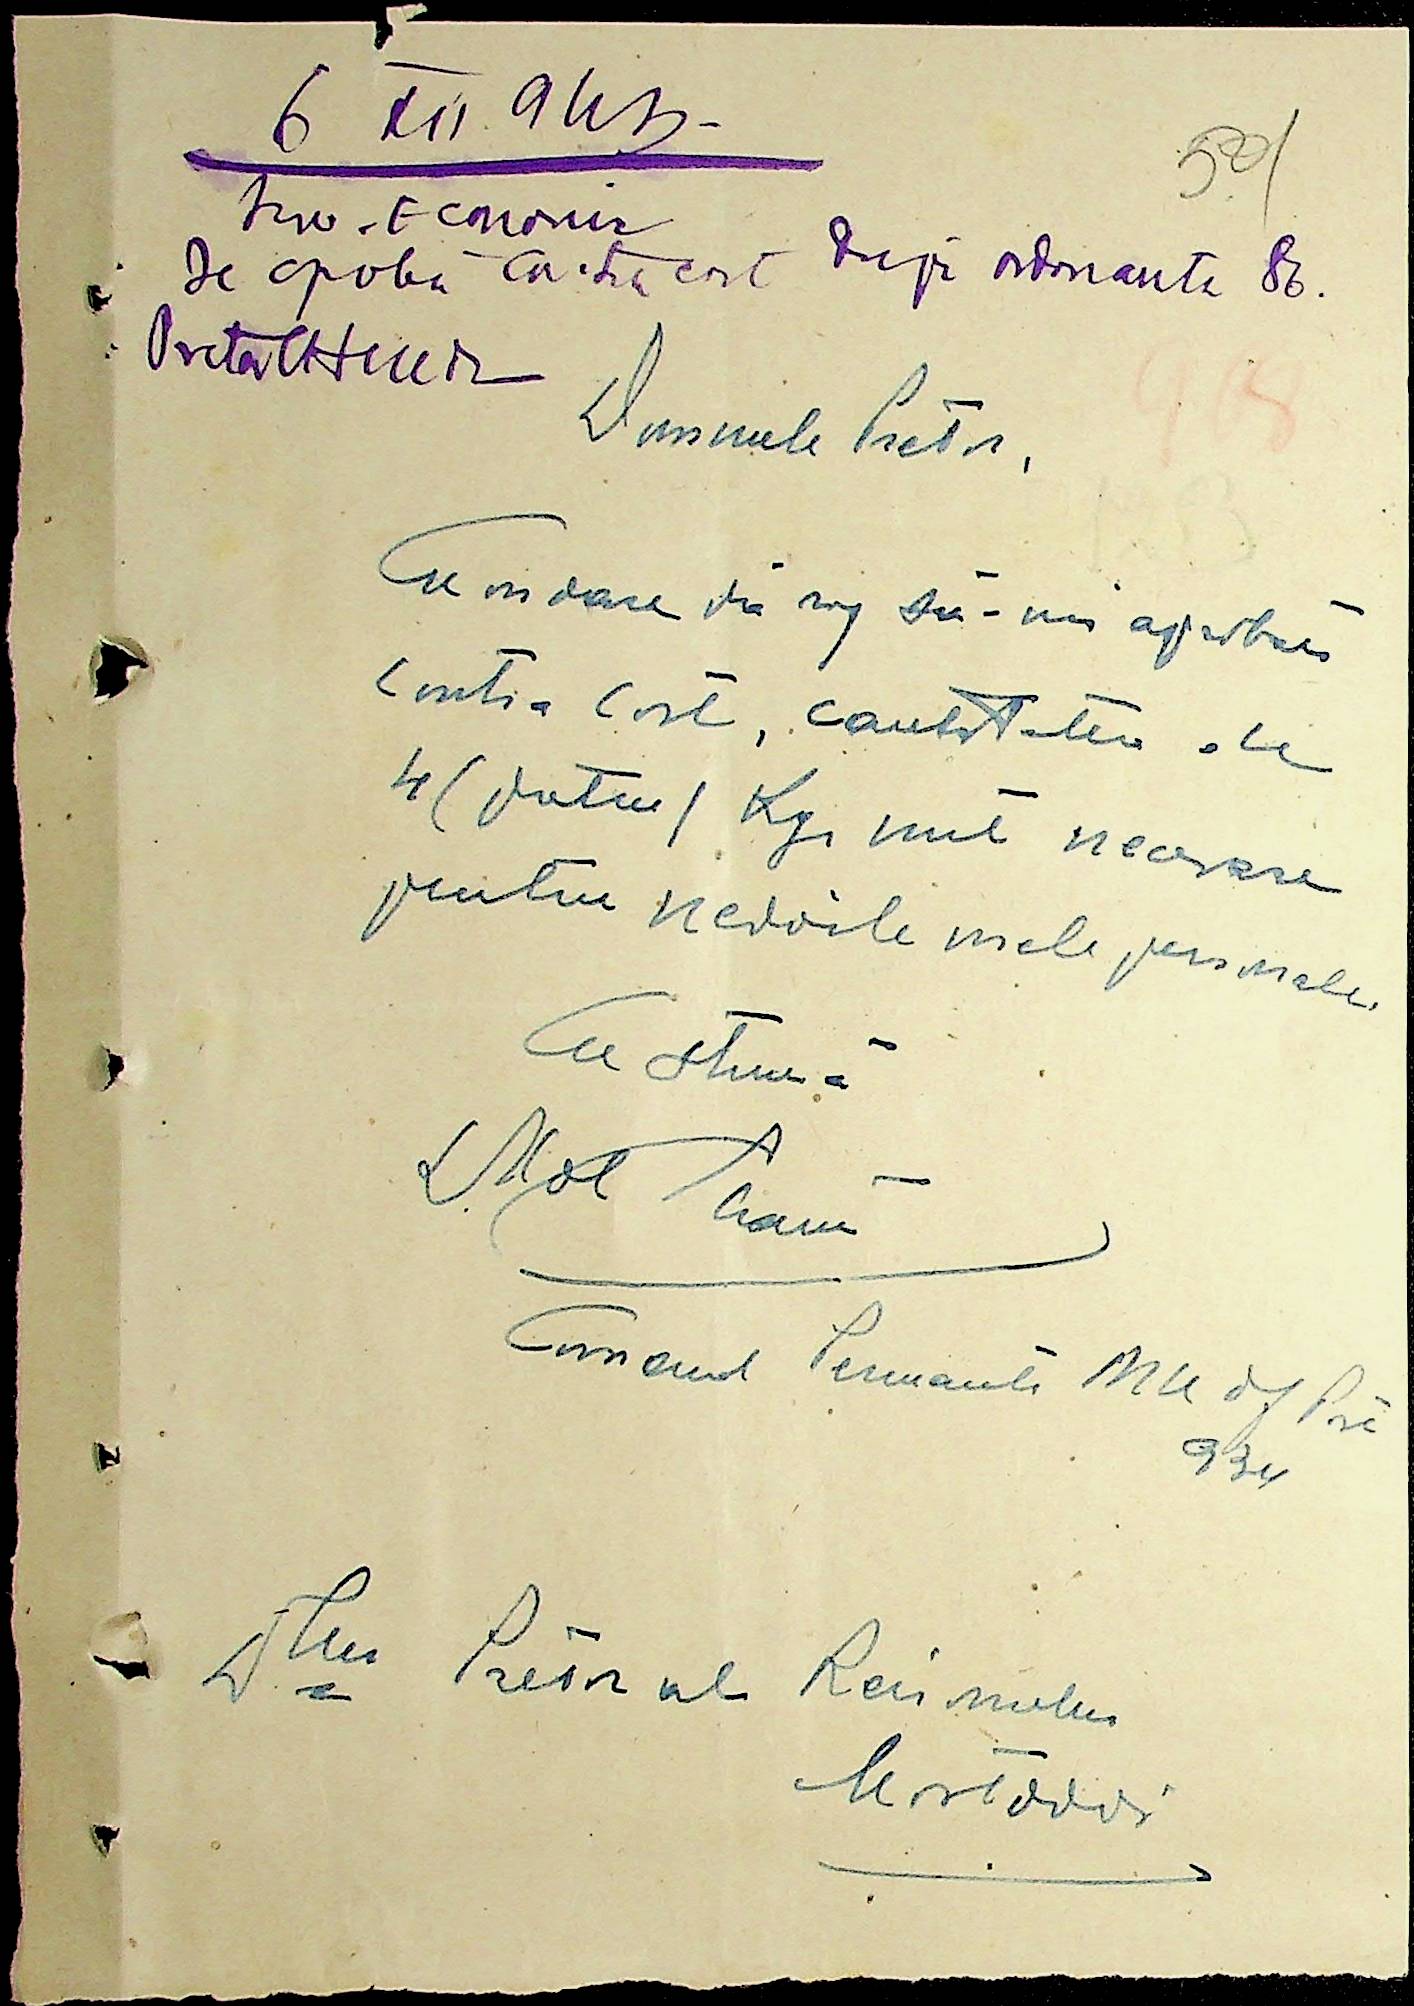 6 XII 943-
521
Serv. Economic
Se aprobă contra cost după ordonanta 86.
Pretor
468
Domnule Pretor,
Cu onoare vă rog să-mi aprobați
contra cost, cantitatea de
4 (patru) Kgr unt necesare
pentru nedoile mele personale.
Cu stimă
Comand
934
D-lui Pretor al Raionului
Mostovoi